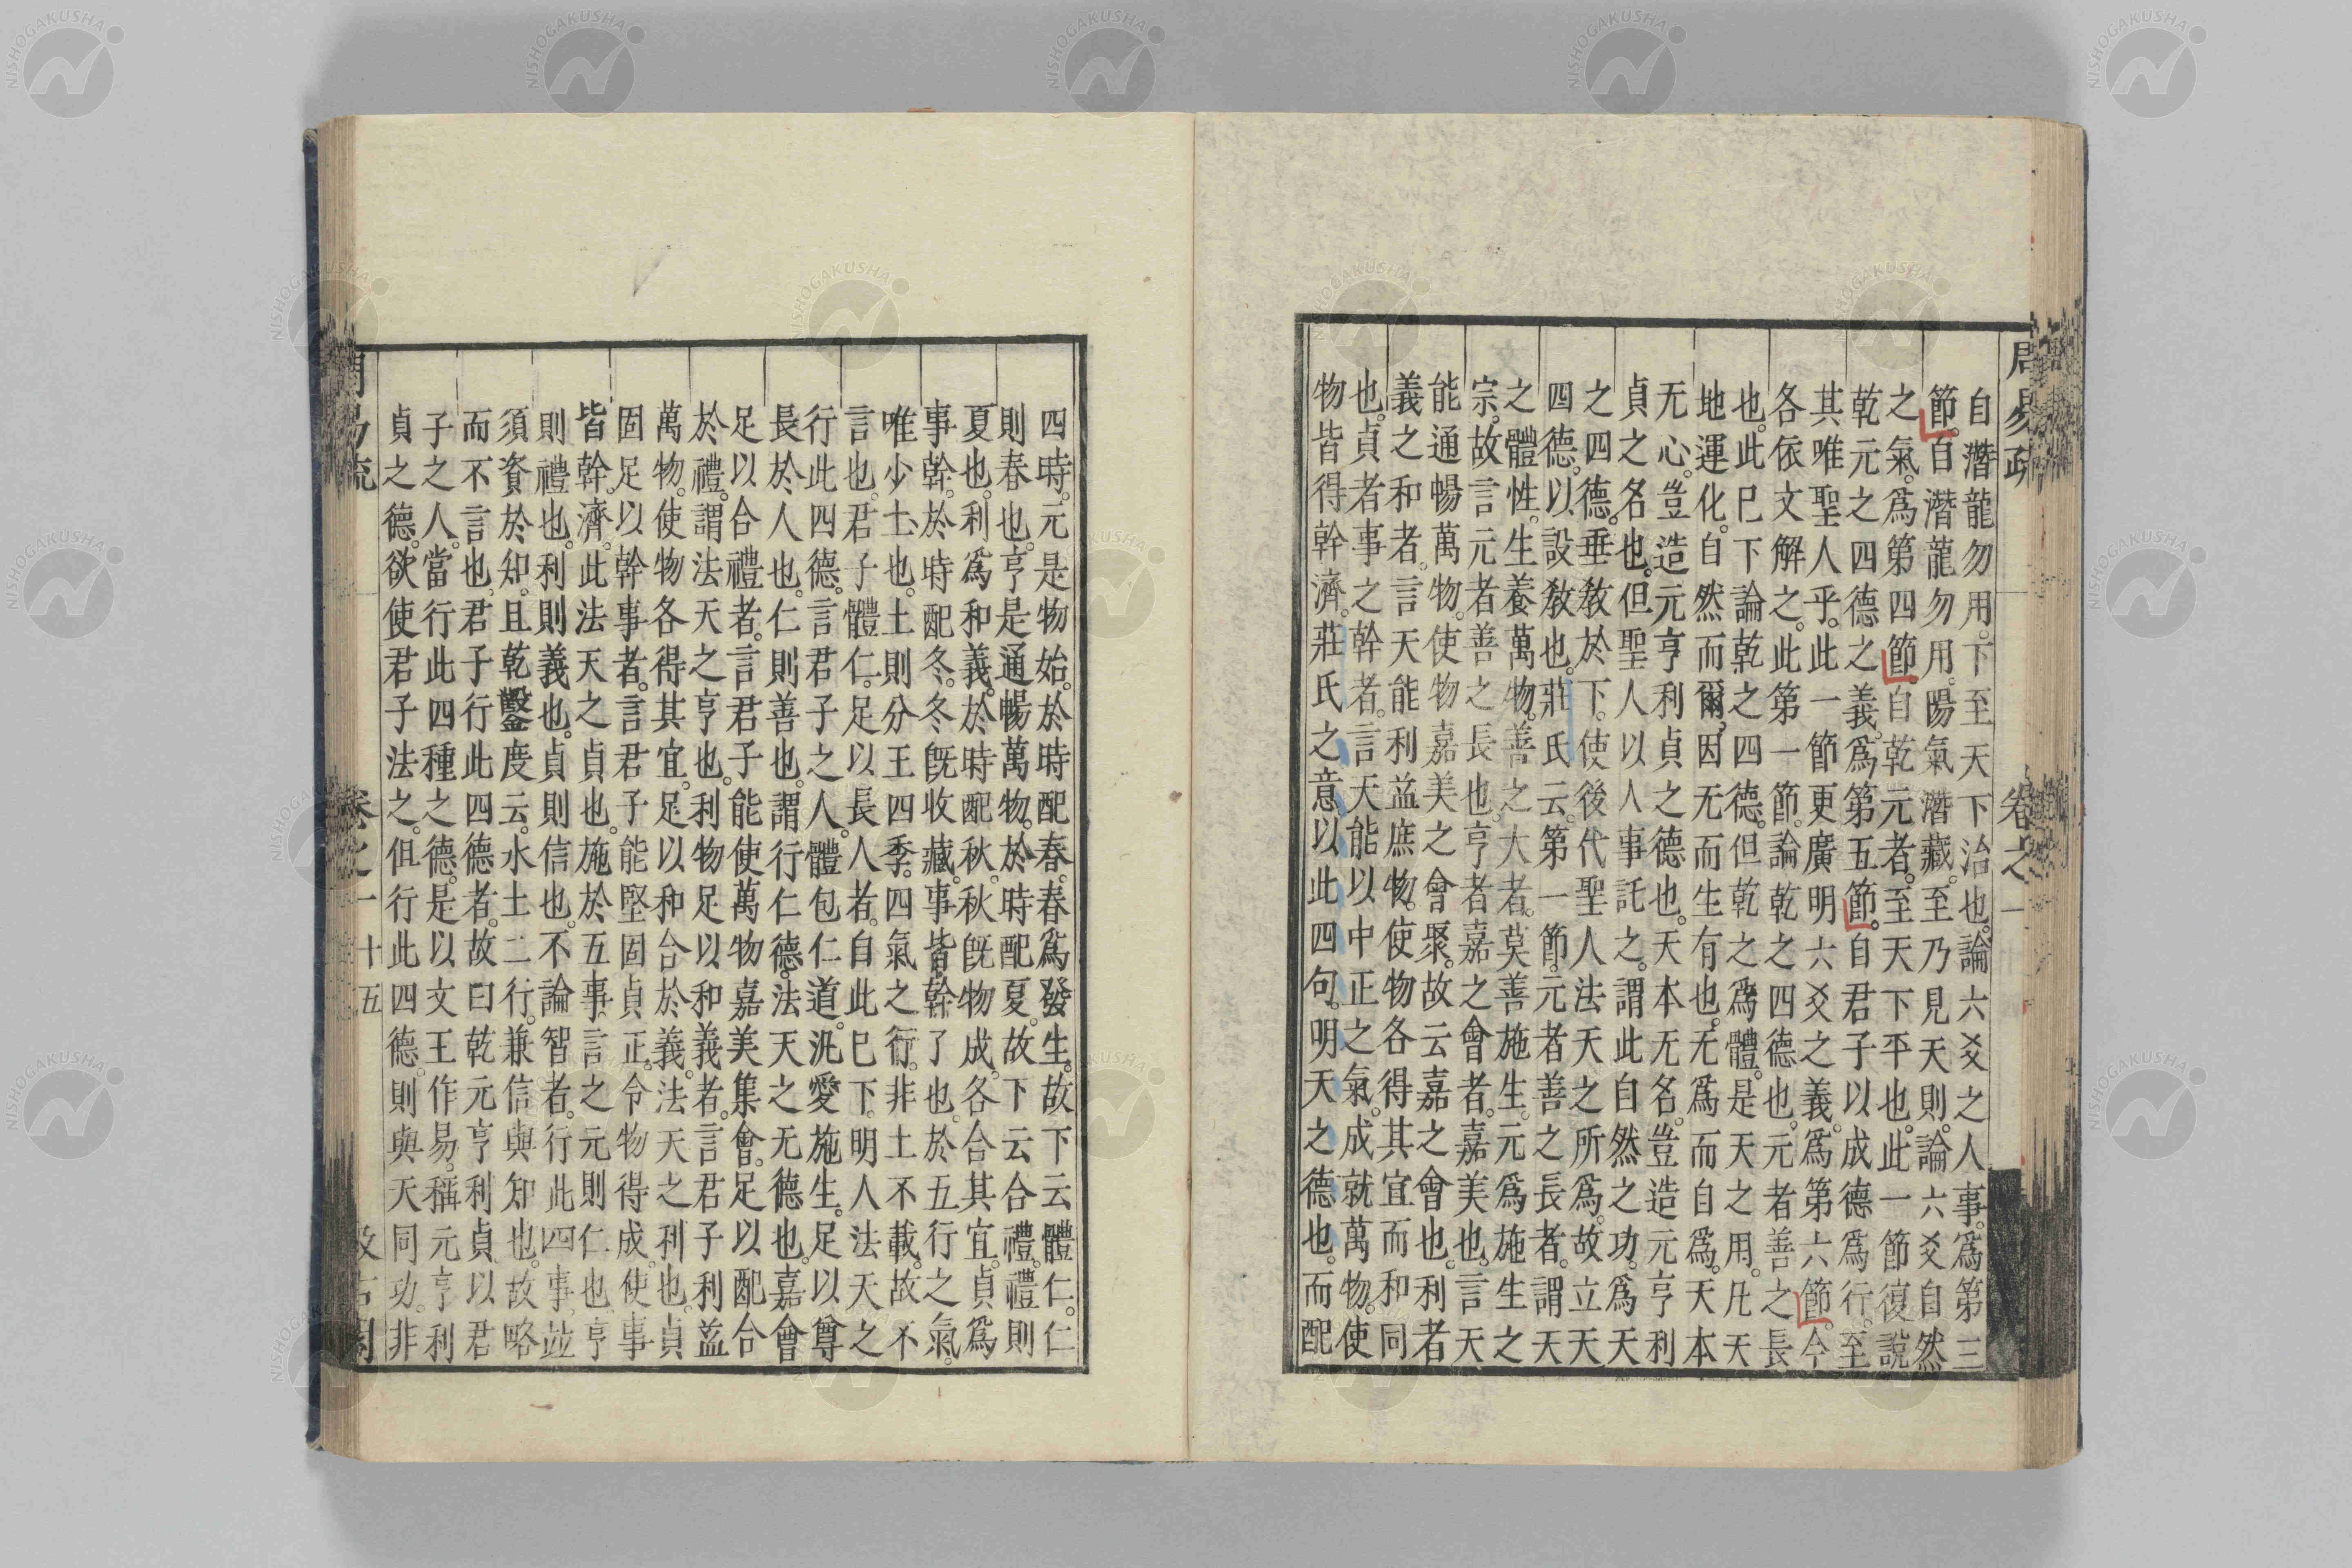 周易疏 卷之一
自潛龍勿用。下至天下治也。論六爻之人事。爲第三
節。自潛龍勿用。陽氣潛藏。至乃見天則。論六爻自然
之氣。爲第四節。自乾元者。至天下平也。此一節復說
乾元之四德之義。爲第五節。自君子以成德爲行。至
其唯聖人乎。此一節更廣明六爻之義。爲第六節。今
各依文解之。此第一節。論乾之四德也。元者善之長
也。此已下論乾之四德。但乾之爲體。是天之用。凡天
地運化。自然而爾。因无而生有也。无爲而自爲。天本
无心。豈造元亨利貞之德也。天本无名。豈造元亨利
貞之名也。但聖人以人事託之。謂此自然之功。爲天
之四德。垂敎於下。使後代聖人法天之所爲。故立天
四德。以設敎也。莊氏云。第一節。元者善之長者。謂天
之體性。生養萬物。善之大者。莫善施生。元爲施生之
宗。故言元者善之長也。亨者嘉之會者。嘉美也。言天
能通暢萬物。使物嘉美之會聚。故云嘉之會也。利者
義之和者。言天能利益庶物。使物各得其宜而和同
也。貞者事之幹者。言天能以中正之氣。成就萬物。使
物皆得幹濟。莊氏之意以此四句。明天之德也。而配
四時。元是物始。於時配春。春爲發生。故下云體仁。仁
則春也。亨是通暢萬物。於時配夏。故下云合禮。禮則
夏也。利爲和義。於時配秋。秋旣物成。各合其宜。貞爲
事幹。於時配冬。冬旣收藏。事皆幹了也。於五行之氣。
唯少土也。土則分王四季。四氣之行。非土不載。故不
言也。君子體仁。足以長人者。自此已下。明人法天之
行此四德。言君子之人。體包仁道。汎愛施生。足以尊
長於人也。仁則善也。謂行仁德。法天之无德也。嘉會
足以合禮者。言君子能使萬物嘉美集會。足以配合
於禮。謂法天之亨也。利物足以和義者。言君子利益
萬物。使物各得其宜。足以和合於義。法天之利也。貞
固足以幹事者。言君子能堅固貞正。令物得成。使事
皆幹濟。此法天之貞也。施於五事言之。元則仁也。亨
則禮也。利則義也。貞則信也。不論智者。行此四事。並
須資於知。且乾鑿度云。水土二行。兼信與知也。故略
而不言也。君子行此四德者。故曰乾元亨利貞。以君
子之人。當行此四種之德。是以文王作易。稱元亨利
貞之德。欲使君子法之。但行此四德。則與天同功。非
周易疏 卷之一 十五 汲古閣
NISHOGAKUSHA